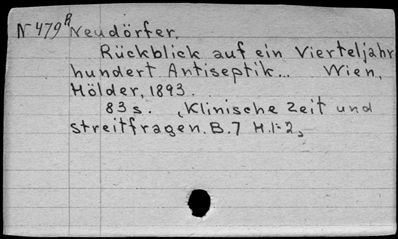 N 479 R Neudörfer,
Rückblick auf ein Vierteljahr
hundert Antiseptik... Wien,
Hölder, 1893.
83 s. „Klinische Zeit und
streitfragen. B. 7 H. 1-2„